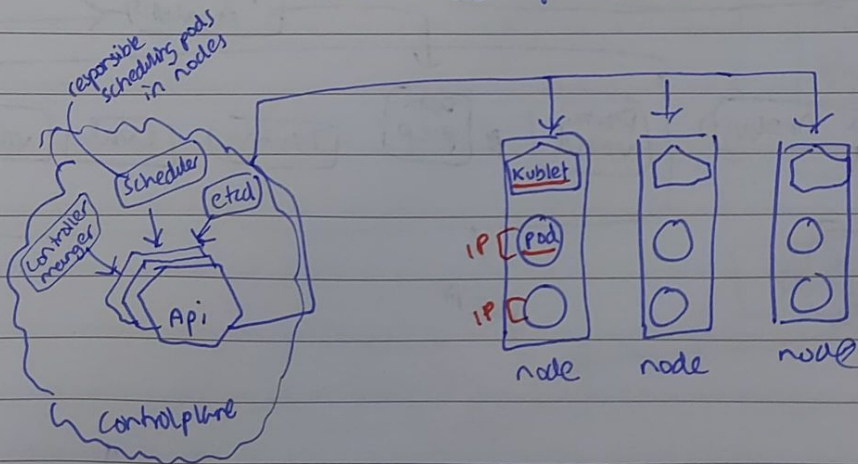 responsible
scheduling pods
in nodes
Scheduler
etcd
Controller
manger
Api
Controlplane
Kublet
IP
pod
IP
node
node
node